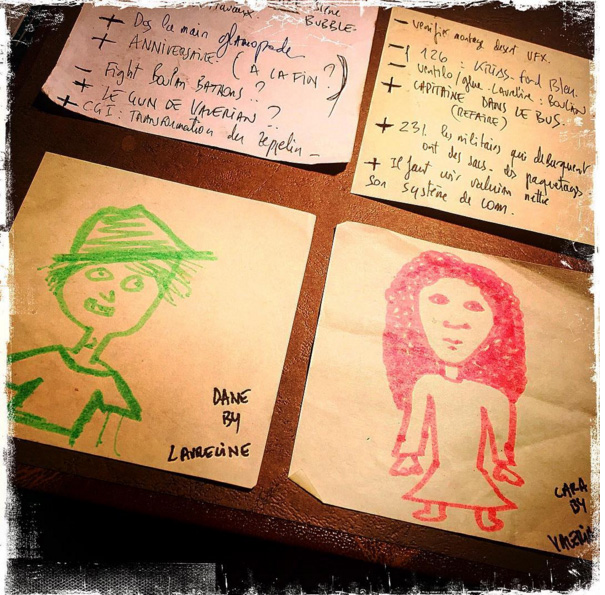 BUBBLE-
+ Dos la main glamopode
+ ANNIVERSAIRE (À LA FIN?)
- Fight BATTONS ??
+ LE GUN DE VALERIAN..?
+ CGI: TRANSFORMATION du zeppelin -
- vérifier montage desert VFX.
126 : fond Bleu.
- ventilo / - Laureline:
+ CAPITAINE DANS LE BUS.
(REFAIRE)
+ 231. les militaires qui debarquent
ont des sacs. des paquetages
+ Il faut voir valerian mettre
son système de com.
DANE
BY
LAURELINE
CARA
BY